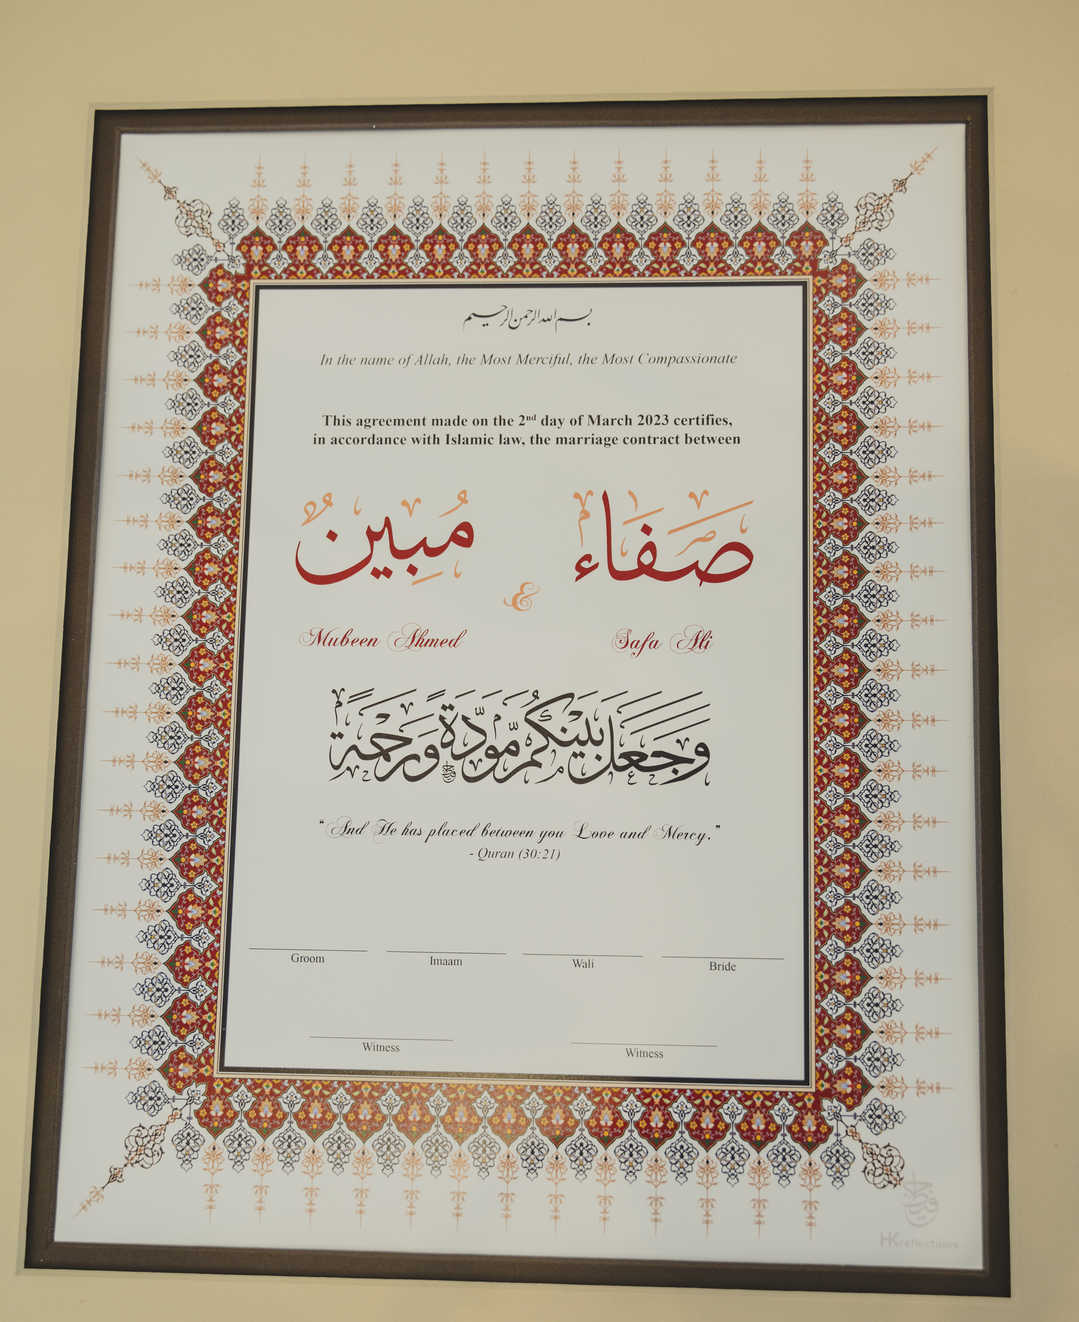 بسم الله الرحمن الرحيم
In the name of Allah, the Most Merciful, the Most Compassionate
This agreement made on the 2nd day of March 2023 certifies,
in accordance with Islamic law, the marriage contract between
صَفَاء
مُبِينٌ
&
Mubeen Ahmed
Safa Ali
وَجَعَلَ بَيْنَكُم مَّوَدَّةً وَرَحْمَةً
“And He has placed between you Love and Mercy.”
- Quran (30:21)
Groom
Imaam
Wali
Bride
Witness
Witness
HKreflections